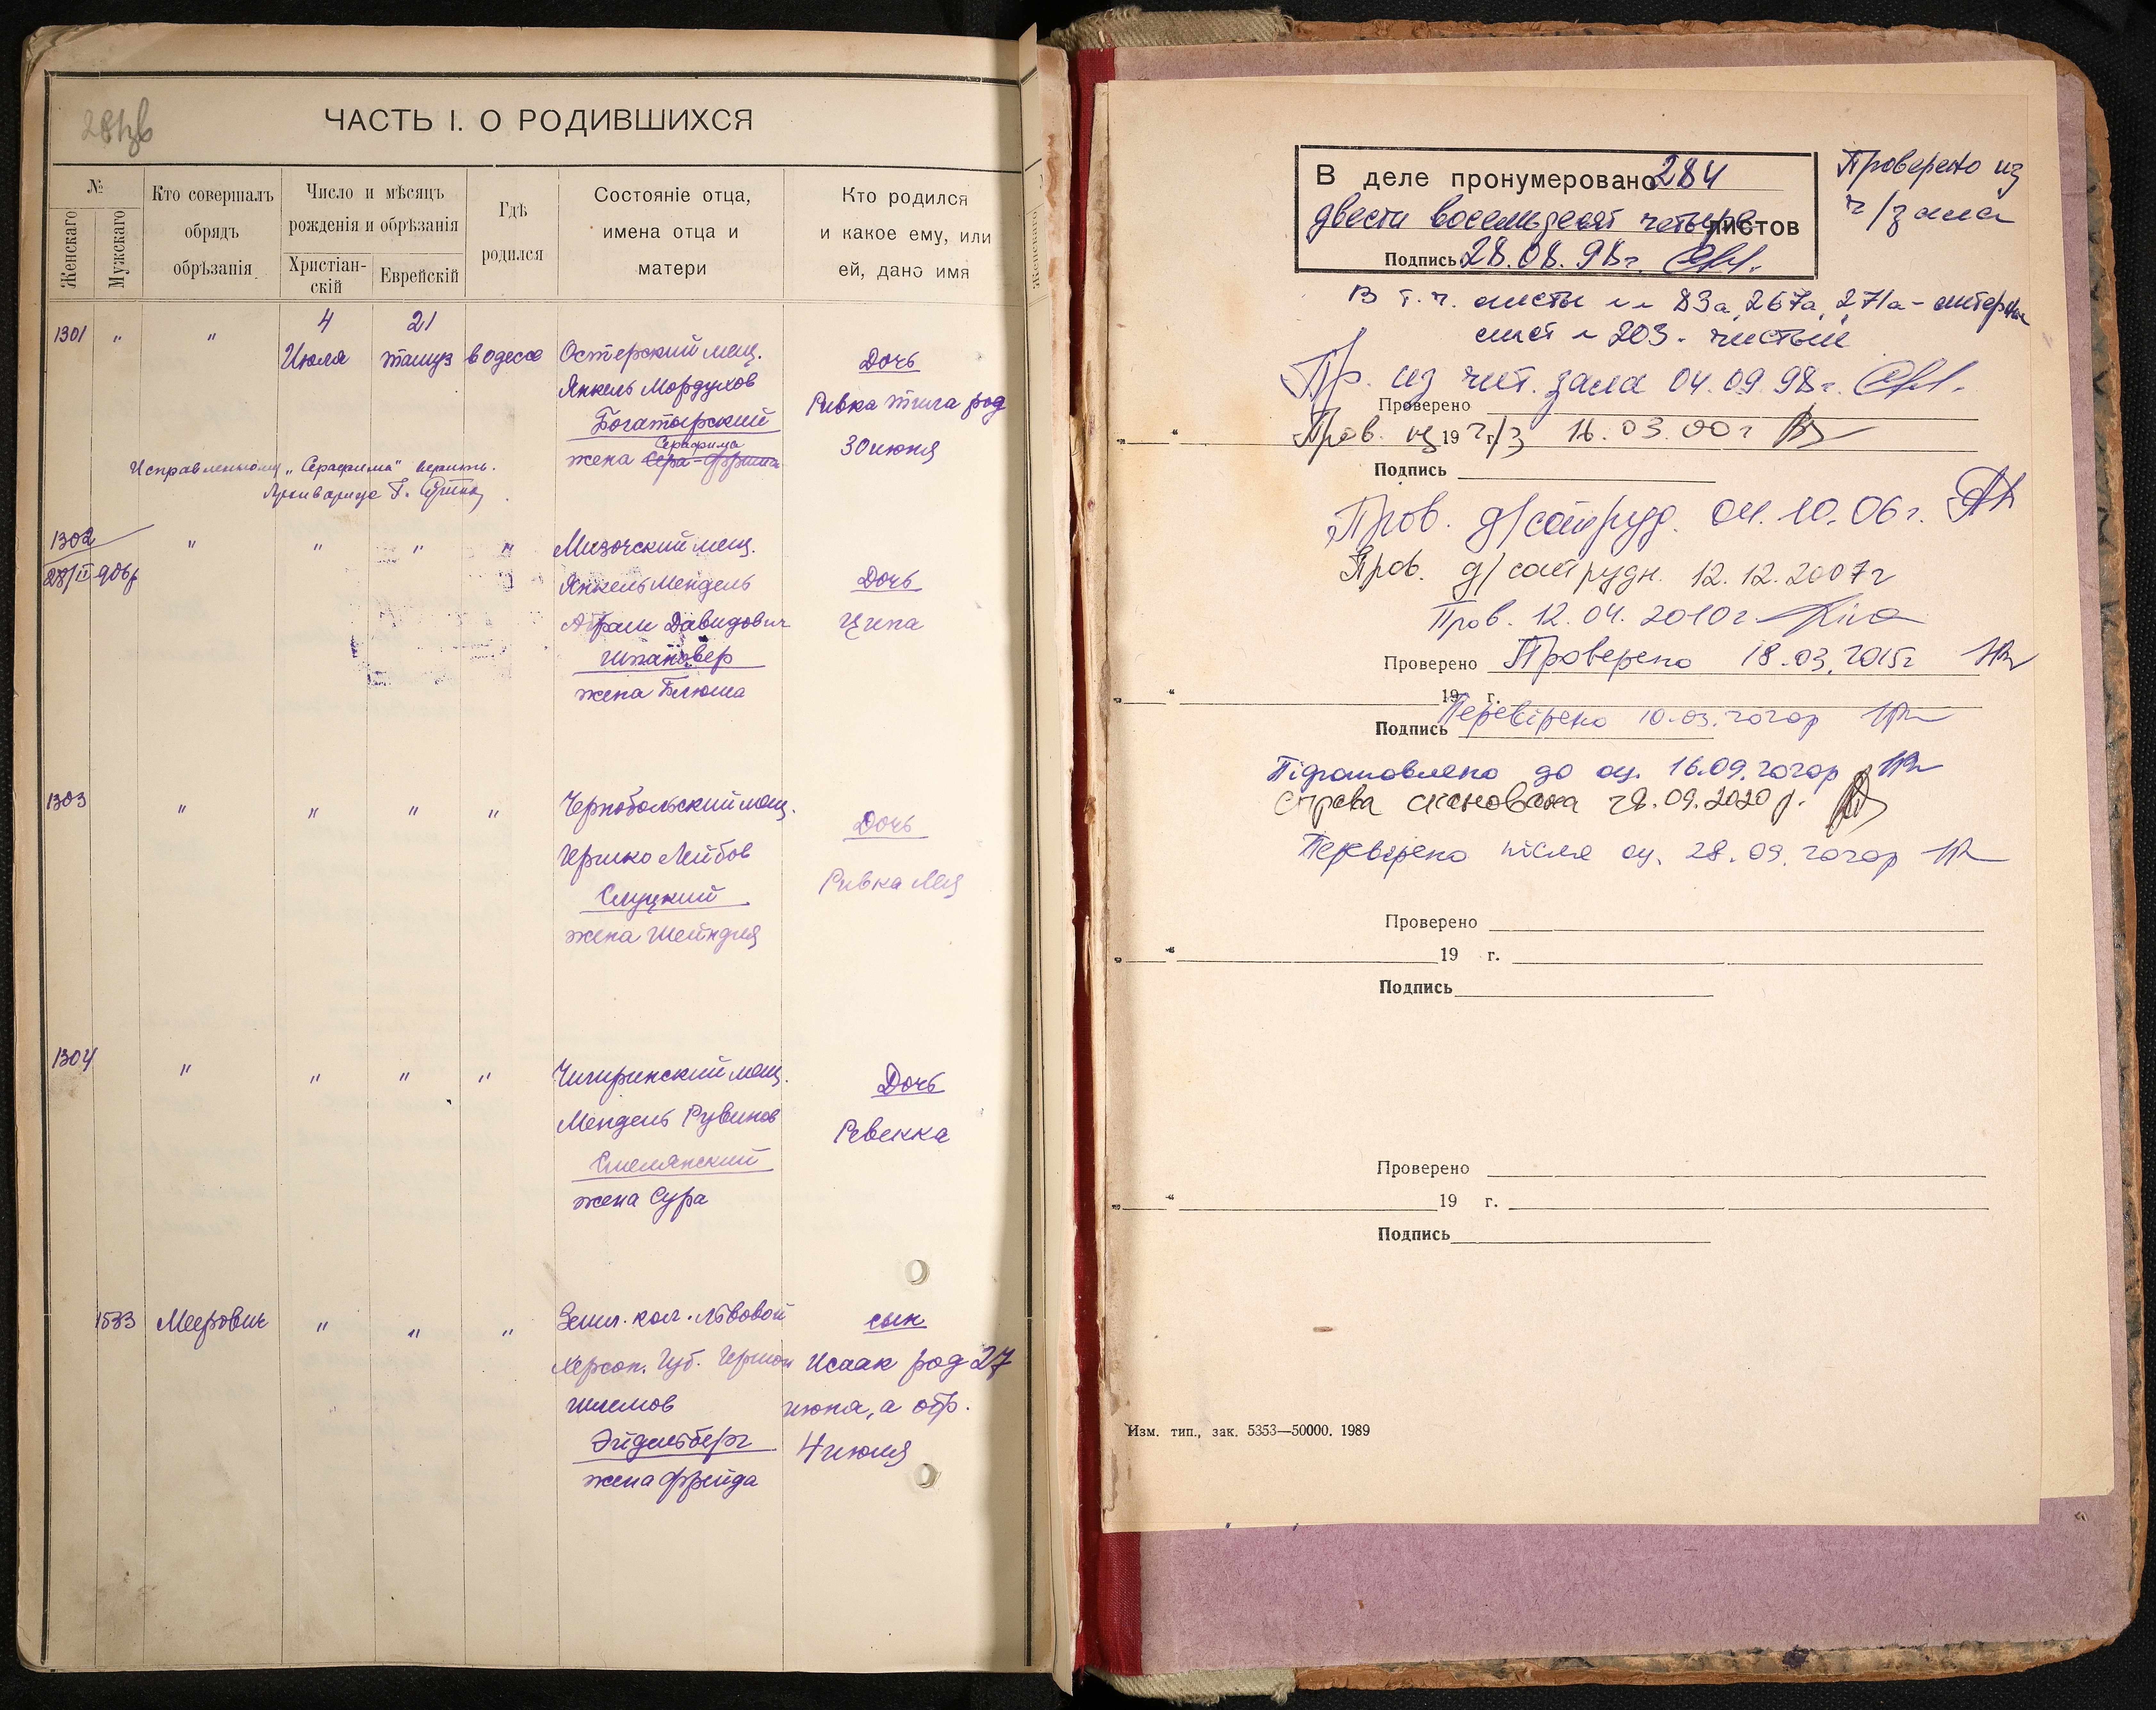 ЧАСТЬ I. О РОДИВШИХСЯ
№
Женскаго
Мужскаго
Кто совершалъ
обрядъ
обрѣзанія
Число и мѣсяцъ
рожденія и обрѣзанія
Христіан-
скій
Еврейскій
Гдѣ
родился
Состояніе отца,
имена отца и
матери
Кто родился
и какое ему, или
ей, дано имя
Женскаго
1301 " "
4 Июля
21 тамуз
в одессе
Остерский мещ.
Янкель Мордухов
Богатырский
Серафима
жена Сера-Фрима
Дочь
Ривка род
30 июня
Исправленному „Серафима" верить.
1302 " " " "
28/II 906
Мизочский мещ.
Янкель Мендель
Абрам Давидович
Шпановер
жена Блюма
Дочь
Ципа
1303 " " " "
Чернобольский мещ.
Гершко Лейбов
Слуцкий
жена Шейндля
Дочь
Ривка Лея
1304 " " " "
Чигиринский мещ.
Мендель Рувинов
Смелянский
жена Сура
Дочь
Ревекка
1533 Меерович " " "
Земл. кол. Львовой
Херсон. Губ. Гершон
Шлемов
Эйдельберг
жена Фрейда
сын
Исаак род 27
июня, а обр.
4 июля
В деле пронумеровано 284
двести восемьдесят четыре листов
Подпись 28.08.98г.
Проверено из
ч/зала
В т.ч. листы 83а, 267а, 271а - литерные
лист 203 - чистый
Пр. из чит. зала 04.09.98г.
Проверено
Пров. из ч/з 16.03.00г
„ “ 19 г.
Подпись
Пров. д/сотруд. 04.10.06г.
Пров. д/сотрудн. 12.12.2007г
Пров. 12.04.2010г
Проверено Проверено 18.03.2015г
„ “ 19 г.
Перевірено 10.03.2020р
Подпись
Підготовлено до оц. 16.09.2020р
Справа сканована 28.09.2020р.
Перевірено після оц. 28.09.2020р
Проверено
„ “ 19 г.
Подпись
Проверено
„ “ 19 г.
Подпись
Изм. тип., зак. 5353—50000. 1989